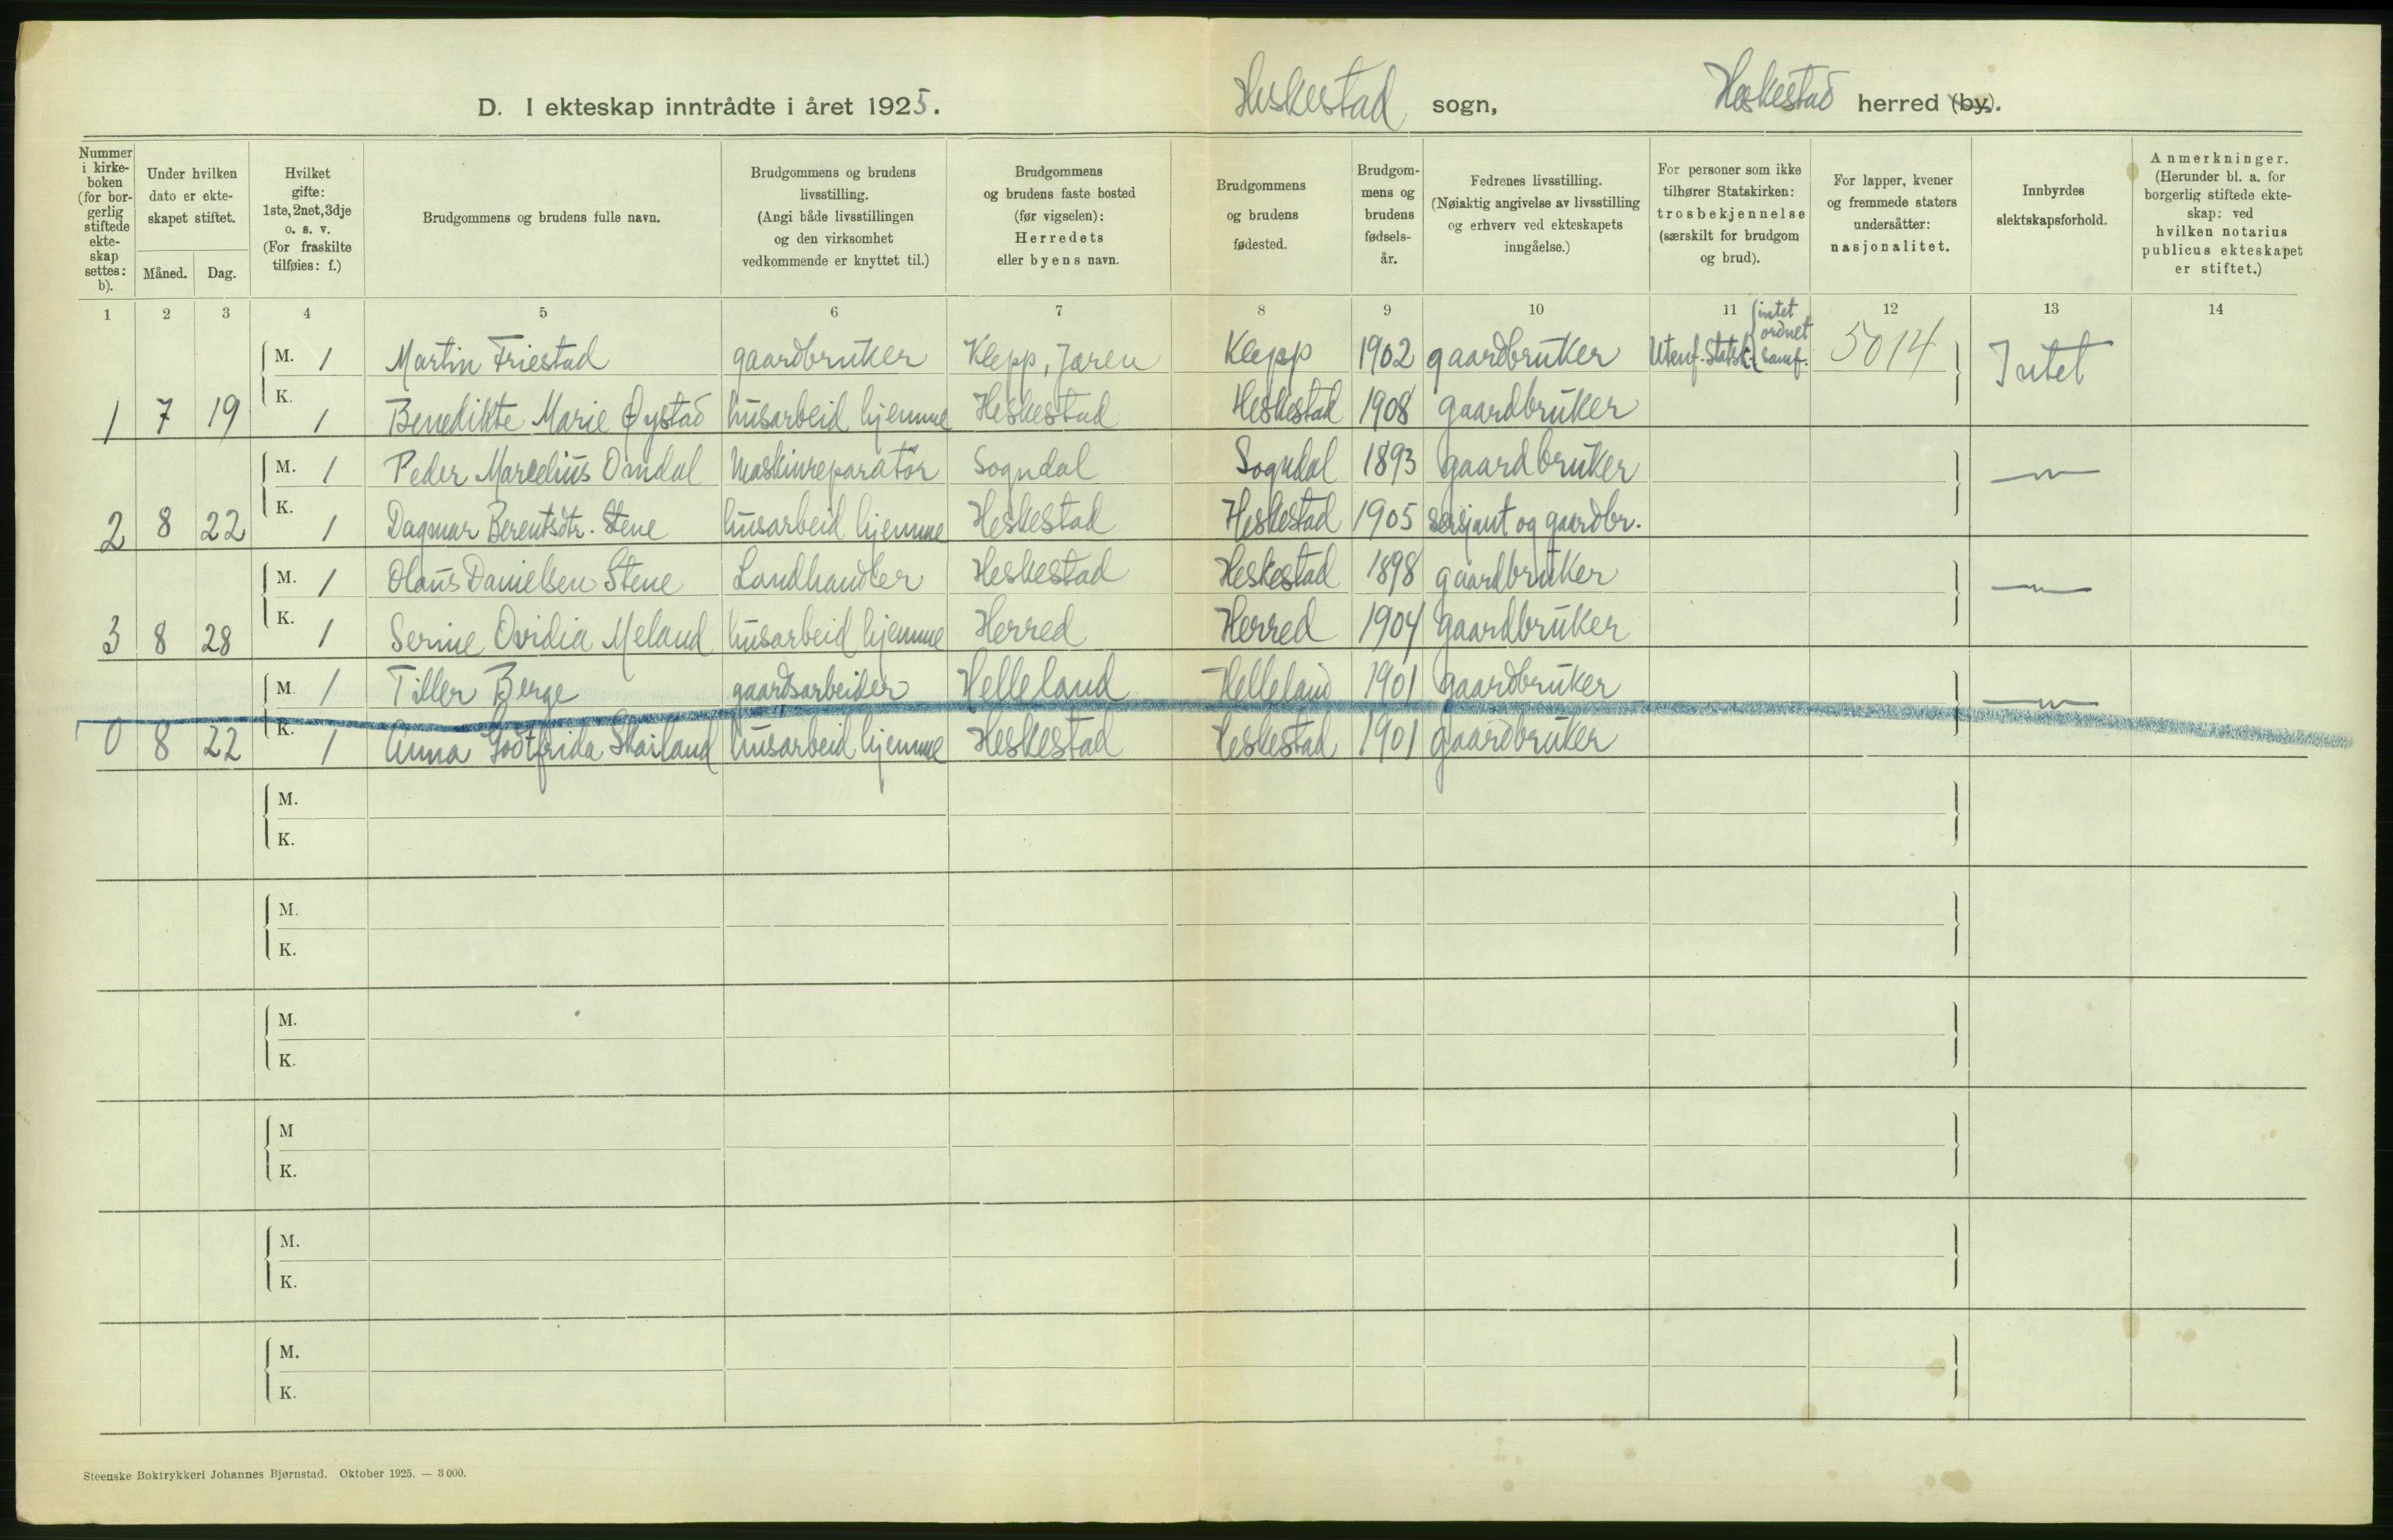 D. I ekteskap inntrådte i året 1925. Heskestad sogn, Heskestad herred (by).
Nummer i kirke-boken (for bor-gerlig stiftede ekte-skap settes: b).
Under hvilken dato er ekte-skapet stiftet.
Måned. Dag.
Hvilket gifte: 1ste, 2net, 3dje o. s. v. (For fraskilte tilføies: f.)
Brudgommens og brudens fulle navn.
Brudgommens og brudens livsstilling. (Angi både livsstillingen og den virksomhet vedkommende er knyttet til.)
Brudgommens og brudens faste bosted (før vigselen): Herredets eller byens navn.
Brudgommens og brudens fødested.
Brudgom-mens og brudens fødsels-år.
Fedrenes livsstilling. (Nøiaktig angivelse av livsstilling og erhverv ved ekteskapets inngåelse.)
For personer som ikke tilhører Statskirken: trosbekjennelse (særskilt for brudgom og brud).
For lapper, kvener og fremmede staters undersåtter: nasjonalitet.
Innbyrdes slektskapsforhold.
Anmerkninger. (Herunder bl. a. for borgerlig stiftede ekte-skap: ved hvilken notarius publicus ekteskapet er stiftet.)
1 2 3 4 5 6 7 8 9 10 11 12 13 14
M. 1 Martin Friestad gaardbruker Klepp, Jæren Klepp 1902 gaardbruker Utenf. Statsk. (intet ordnet samf. 5014 Intet
1 7 19 K. 1 Benedikte Marie Øystad husarbeid hjemme Heskestad Heskestad 1908 gaardbruker
M. 1 Peder Marcelius Omdal Maskinreparatør Sogndal Sogndal 1893 gaardbruker —"—
2 8 22 K. 1 Dagmar Berentsdtr. Stene husarbeid hjemme Heskestad Heskestad 1905 sersjant og gaardbr.
M. 1 Olaus Danielsen Stene Landhandler Heskestad Heskestad 1898 gaardbruker —"—
3 8 28 K. 1 Serine Ovidia Meland husarbeid hjemme Herred Herred 1904 gaardbruker
M. 1 Tiller Berge gaardsarbeider Helleland Helleland 1901 gaardbruker —"—
0 8 22 K. 1 Anna Godtfrida Skailand husarbeid hjemme Heskestad Heskestad 1901 gaardbruker
M.
K.
M.
K.
M.
K.
M
K.
M.
K.
M.
K.
Steenske Boktrykkeri Johannes Bjørnstad. Oktober 1925. — 3000.